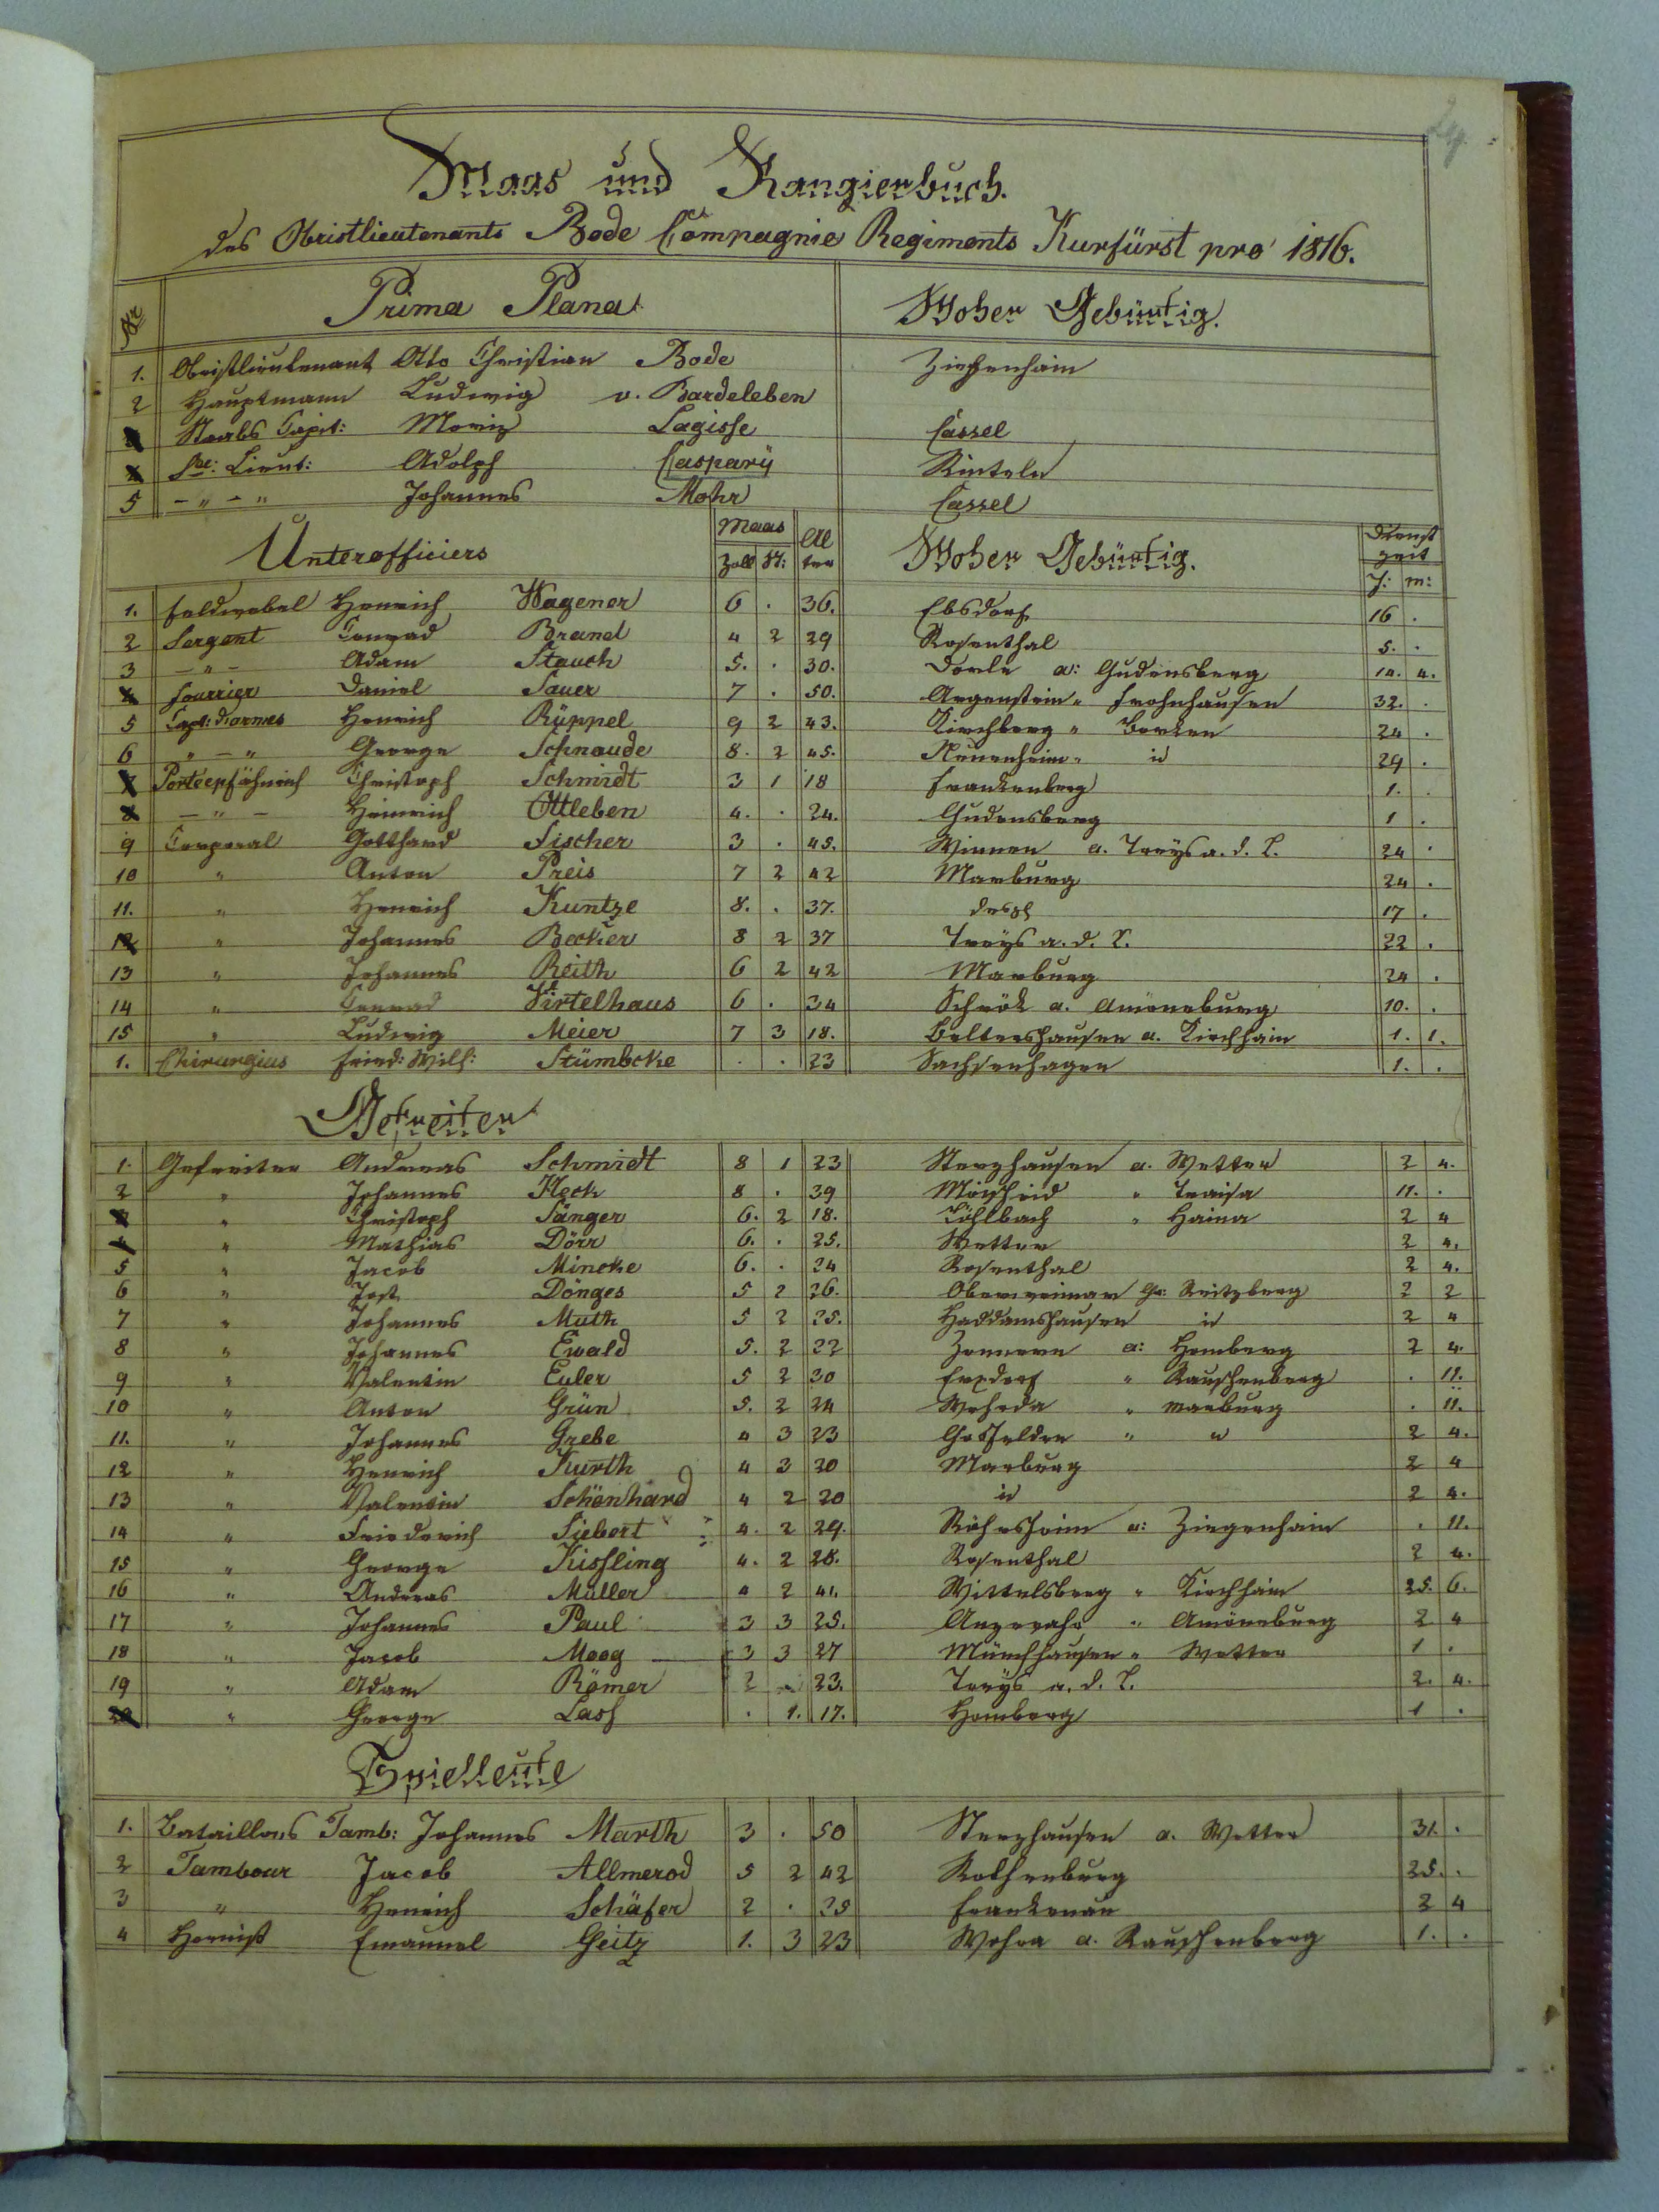 Maas und Rangierbuch.
des Obristlieutenants Bode Compagnie Regiments Kurfürst pro 1816.
Nr Prima Plana Woher Gebürtig.
1. Obristlieutenant Otto Christian Bode Ziegenhain
2 Hauptmann Ludwig v. Bardeleben
3 Staabs Capit: Moriz Lagisse Cassel
4 Sec: Lieut: Adolph Caspary Rinteln
5 – " – " Johannes Mohr Cassel
Unterofficiers Maas Al Woher Gebürtig. Dienst
Zoll St: ter zeit
J: M:
1. Feldwebel Henrich Wagener 6 . 36. Ebsdorf 16 .
2 Sergent Conrad Brand 4 2 29 Rosenthal 5. .
3 – " – Adam Stauch 5. . 30. Dorla a: Gudensberg 14. 4.
4 Fourrier Daniel Sauer 7 . 50. Argenstein " Frohnhausen 32. .
5 Capt: d'armes Henrich Rüppel 9 2 43. Kirchberg " Borken 24 .
6 " – " George Schnaude 8. 2 45. id 29 .
7 Porteepfähnrich Christoph Schmidt 3 1 18 Frankenberg 1. .
8 – " – Heinrich Ottleben 4. . 24. Gudensberg 1 .
9 Corporal Gotthard Fischer 3 . 45. Winnen a. Treÿs a. d. L. 24 .
10 " Anton Preis 7 2 42 Marburg 24 .
11. " Henrich Kuntze 8. . 37. desgl 17 .
12 " Johannes Becker 8 2 37 Treÿs a. d. L. 22 .
13 " Johannes Reith 6 2 42 Marburg 24 .
14 " Conrad Virtelhaus 6 . 34 Schröck a. Amöneburg 10. .
15 " Ludwig Meier 7 3 18. Beltershausen a. Kirchhain 1. 1.
1. Chirurgius Fried: Wilh: Stümbcke . . 23 Sachsenhagen 1. .
Gefreiten
1. Gefreiter Andreas Schmidt 8 1 23 Sterzhausen a. Wetter 2 4.
2 " Johannes Heck 8 . 39 Moischeid " Traisa 11. .
3 " Christoph Sänger 6. 2 18. Löhlbach " Haina 2 4
4 " Mathias Dörr 6. . 25. Wetter 2 4.
5 " Jacob Mincke 6. . 24 Rosenthal 2 4.
6 " Jost Dönges 5 2 26. Oberweimar Gr: Reitzberg 2 2
7 " Johannes Muth 5 2 25. Haddamshausen id 2 4
8 " Johannes Ewald 5. 2 22 Zennern a: Homberg 2 4.
9 " Valentin Euler 5 2 30 Erxdorf " Rauschenberg . 11.
10 " Anton Grün 5. 2 24 Wehrda " Marburg . 11.
11. " Johannes Grebe 4 3 23 Gosfelden " " 2 4.
12 " Henrich Kurth 4 3 20 Marburg 2 4
13 " Valentin Schönhard 4 2 20 id 2 4.
14 " Friederich Siebert 4. 2 29. Röhrshain a: Ziegenhain . 11.
15 " George Kissling 4. 2 28. Rosenthal 2 4.
16 " Andreas Müller 4 2 41. Wittelsberg " Kirchhain 25. 6.
17 " Johannes Paul 3 3 25. Anzefahr " Amöneburg 2 4
18 " Jacob Moog 3 3 27 Münchhausen " Wetter 1 .
19 " Adam Römer 2 23. Treÿs a. d. L. 2. 4.
20 " George Lasch . 1. 17. Homberg 1 .
Spielleute
1. Bataillons Tamb: Johannes Marth 3 . 50 Sterzhausen a. Wetter 31. .
2 Tambour Jacob Allmerod 5 2 42 Rothenburg 25. .
3 " Henrich Schäfer 2 . 25 Frankenau 2 4
4 Hornist Emanuel Geitz 1. 3 23 Wohra a. Rauschenberg 1. .